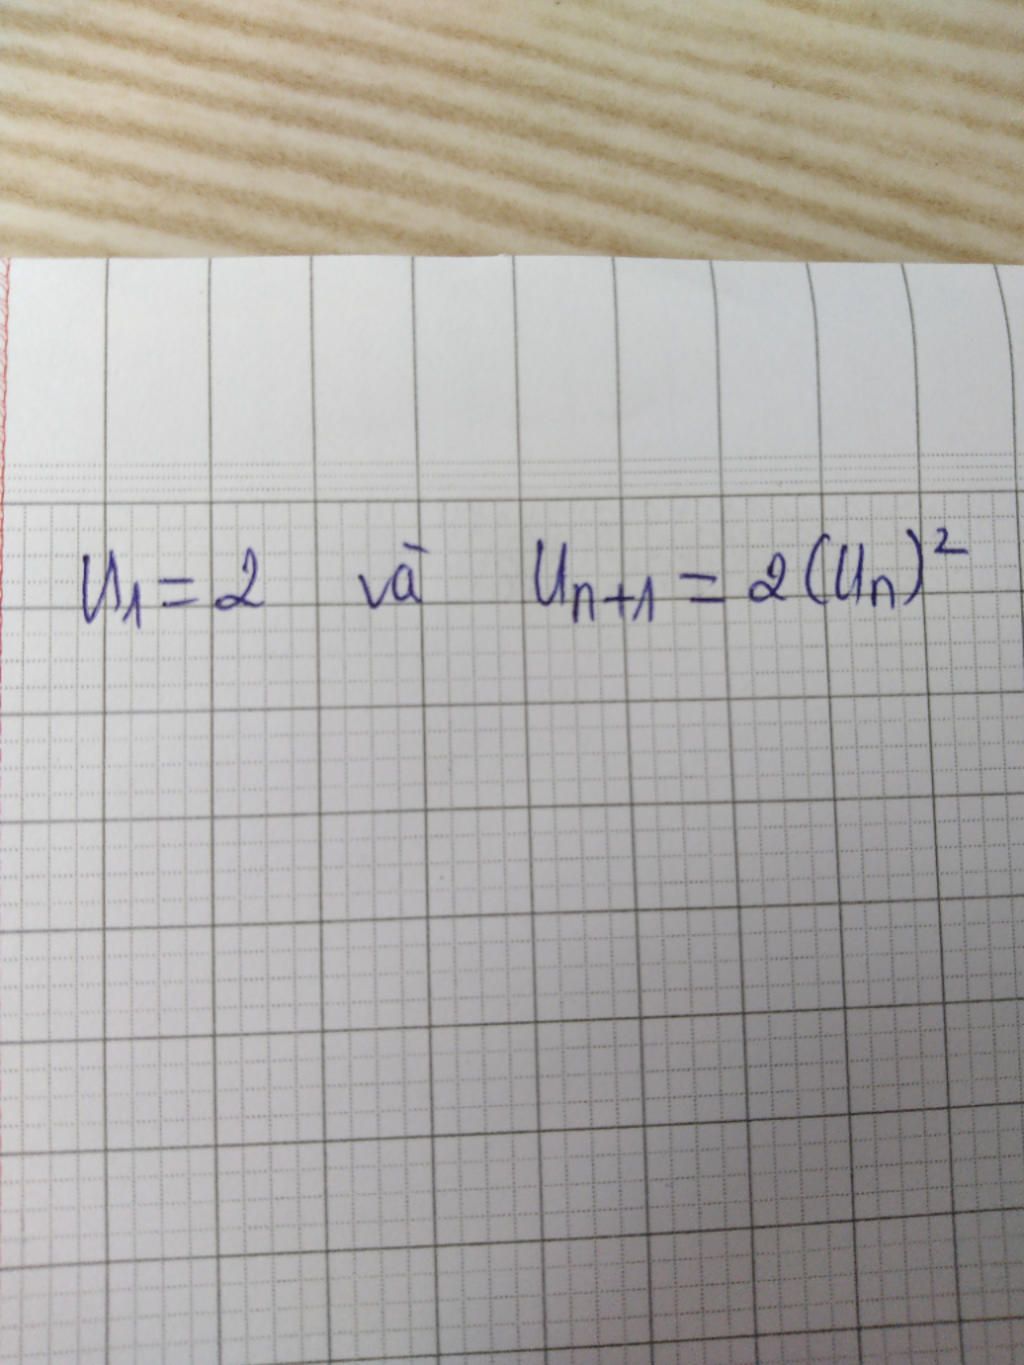 U₁ = 2 và Uₙ₊₁ = 2(Uₙ)²